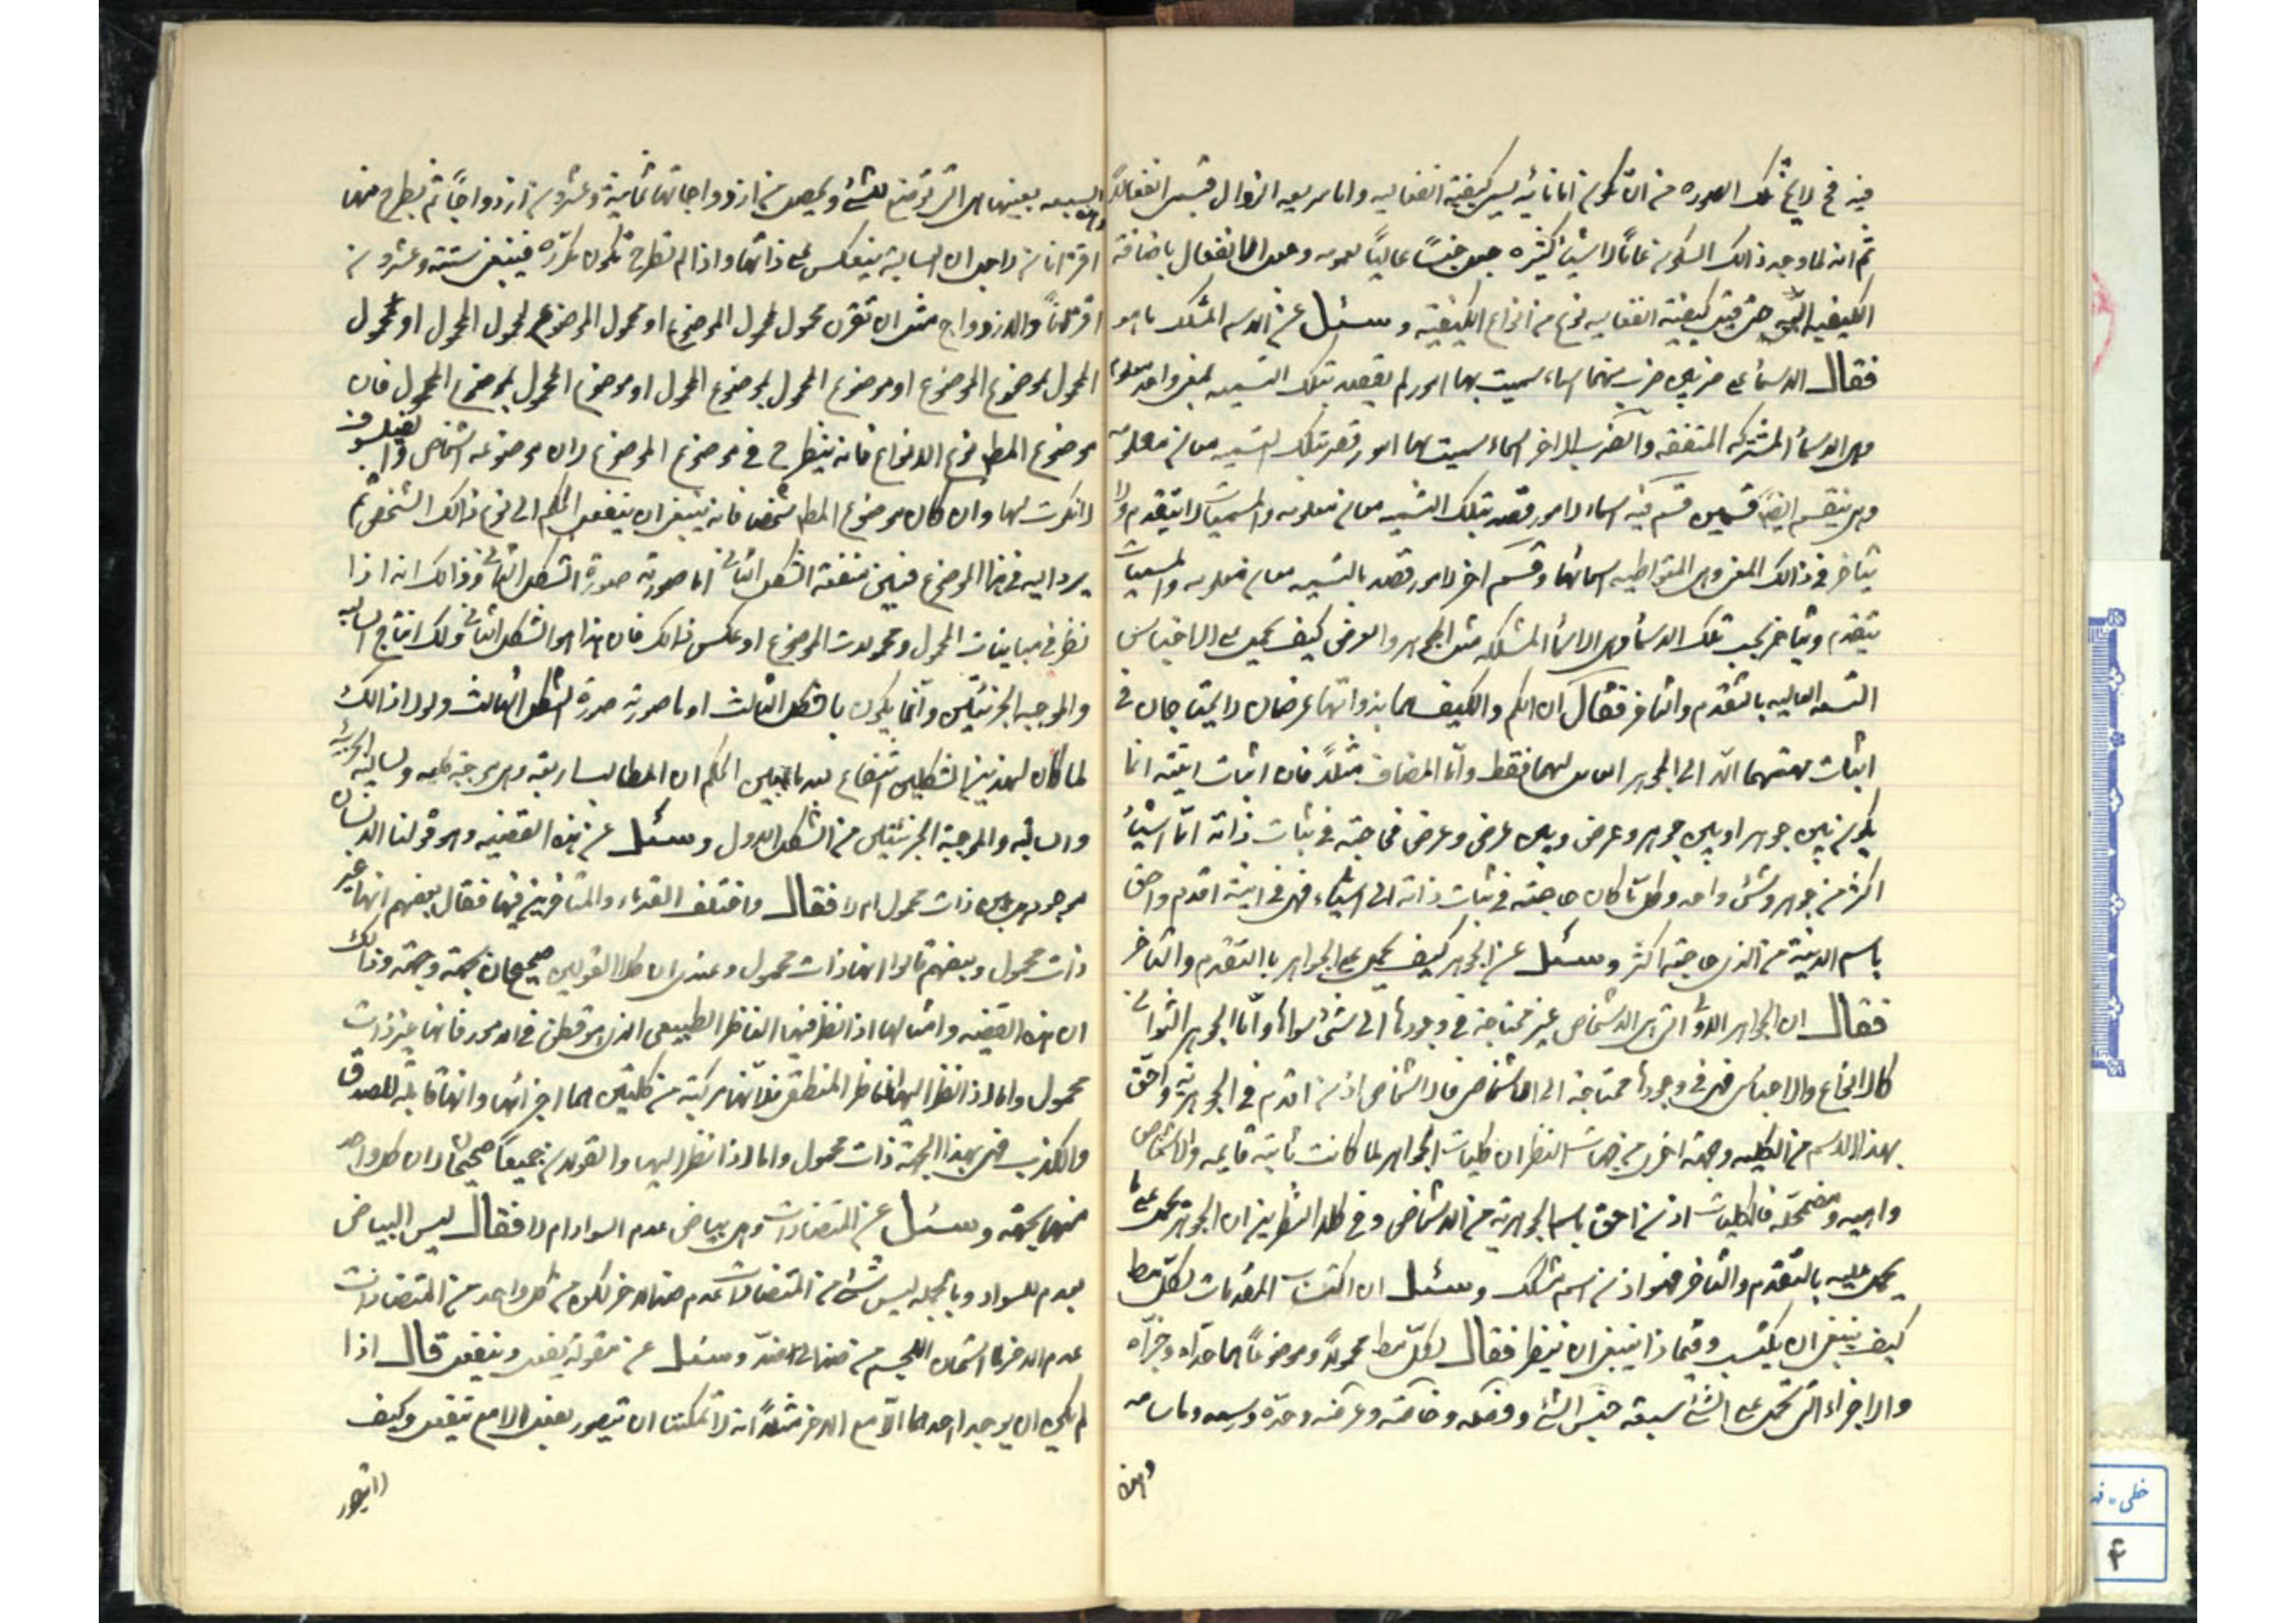 فيه فح لايخ تلك الصوره من ان تكون اما ثانيه ليس كيفيته انفعاليه واما سريعه الزوال فتسمى انفعالاً
ثم انه لما وجد ذالك السكون عاماً لاشياء كثيره جعل جنساً عالياً لعمومه وجعل الانفعال باضافة
الكيفيه اليه حتى قيل كيفيته انفعاليه نوع من انواع الكيفيته وسئل عن الاسم المشكك ما هو
فقال الاسماء على ضربين ضرب منهما اسماء سميت بها امور لم يقصد بتلك التسميه لمعنى واحد معلوم
وهى الاسماء المشتركه المتفقه والضرب الاخر اسماء سميت بها امور قصد بتلك التسميه معان معلومه
وهى ينقسم ايضاً قسمين قسم فيه اسماء لامور قصد بتلك التسميه معان معلومه والمسميات لا يتقدم ولا
يتاخر فى ذالك المعنى وهى المتواطيه اسمائها وقسم اخر لامور قصد بالتسميه معان معلومه والمسميات
يتقدم ويتاخر بحسب تلك الاسماء وهى الاسماء المشككه مثل الجوهر والعرض كيف يحمل على الاجناس
التسعه العاليه بالتقدم والتاخر فقال ان الكم والكيف هما بذواتهما عرضان لا يحتاجان فى
اثبات مهيتهما الا الى الجوهر الحامل لهما فقط واما المضاف مثلاً فان اثبات انيته انما
يكون بين جوهر اوبين جوهر وعرض وبين عرض وعرض فحاجته فى ثبات ذاته الى اشياء
اكثر من جوهر وشئ واحد وكل ما كان حاجته فى ثبات ذاته الى اشياء فهى فى انيته اقدم واحق
باسم الانيته من الذى حاجته اكثر وسئل عن الجوهر كيف يحمل على الجواهر بالتقدم والتاخر
فقال ان الجواهر الاولى التى هى الاشخاص غير محتاجة فى وجودها الى شئ سواها واما الجواهر الثوانى
كالانواع والاجناس فهى فى وجودها محتاجة الى الاشخاص فالاشخاص اذن اقدم فى الجوهريه واحق
بهذا الاسم من الكليه وجهة اخرى من جهات النظر ان كليات الجواهر لما كانت ثابته قايمه والاشخاص
واهيه ومضمحله فالكليات اذن احق باسم الجوهرية من الاشخاص وفى كلا النظرين ان الجوهر يحمل على ما
يحمل عليه بالتقدم والتاخر فهو اذن اسم مشكك وسئل ان اكتساب المقدمات لكل مط
كيف ينبغى ان يكتسب وفيما ذا ينبغى ان ينظر فقال لكل مط محمولاً وموضوعاً هما حداه وجزاه
والاجزاء التى تحمل على الشئ سبعة جنس الشئ وفصله وخاصته وعرضه وحدّه ورسمه وماساه
وهذه
السبعه بعينها هى التى توضع للشئ ويحصل من ازدواجاتها ثمانية وعشرون ازدواجاً ثم يطرح منها
اقترانان لاجل ان السالبة ينعكس على ذاتها واذا لم تطرح تكون مكررة فينبغى ستته وعشرون
اقتراناً والازدواج مثل ان تقرن محمول لمحمول الموضوع او محمول الموضوع لمحمول المحمول او محمول
المحمول لموضوع الموضوع او موضوع المحمول لموضوع المحمول او موضوع المحمول لموضوع المحمول فان
موضوع المط نوع الانواع فانه ينطرح فى موضوع الموضوع لان موضوعه اشخاص والفيلسوف
لا يكرث لها وان كان موضوع المط شخصا فانه ينبغى ان ينتقل الحكم الى نوع ذالك الشخص ثم
يرد اليه فى هذا الموضوع فتبين منفعة الشكل الثانى اما صورته صورة الشكل الثانى وذالك انه اذا
نظر فى مباينات المحمول ومحمولات الموضوع او عكس ذالك فان هذا هو الشكل الثانى ولك انتاج السالبه
والموجبه الجزئيتين وانما يكون بالشكل الثالث او ما صورته صورة الشكل الثالث ولولا ذالك
لما كان لهذين الشكلين انتفاع بعد ما تبين الحكم ان المطالب اربعة وهى موجبة كليه وسالبة كليه
والسالبه والموجبة الجزئيتين من الشكل الاول وسئل عن هذه القضيه وهو قولنا الانسان
موجود هل هى ذات محمول ام لا فقال واختلف القدماء والمتاخرين فيها فقال بعضهم انها غير
ذات محمول وبعضهم قالوا انها ذات محمول وعندى ان كلا القولين صحيحان بجهة وجهة وذالك
ان هذه القضيه وامثالها اذا نظر فيها الناظر الطبيعى الذى هو فطن فى الامور فانها غير ذات
محمول واما اذا نظر اليها الناظر المنطقى فلانها مركبة من كلمتين هما اجزائها وانها قابلة للصدق
والكذب فهى بهذا الجهة ذات محمول واما اذا نظر اليها والقولان جميعاً صحيحان لان كل واحد
منهما بجهة وسئل عن المتضادات وهى بياض عدم السواد ام لا فقال ليس البياض
بعدم للسواد وبالجمله ليس شئ من المتضادات عدم ضد الاخر لكن من كل واحد من المتضادات
عدم الاخر كاستحالة الجسم من ضد الى ضدّ وسئل عن مقولة يفعل وينفعل قال اذا
لم يكن ان يوجد احدهما الا مع الاخر مثلاً انه لا يمكننا ان نتصور يفعل الا مع ينفعل وكيف
لا نتصور
خطى
۴